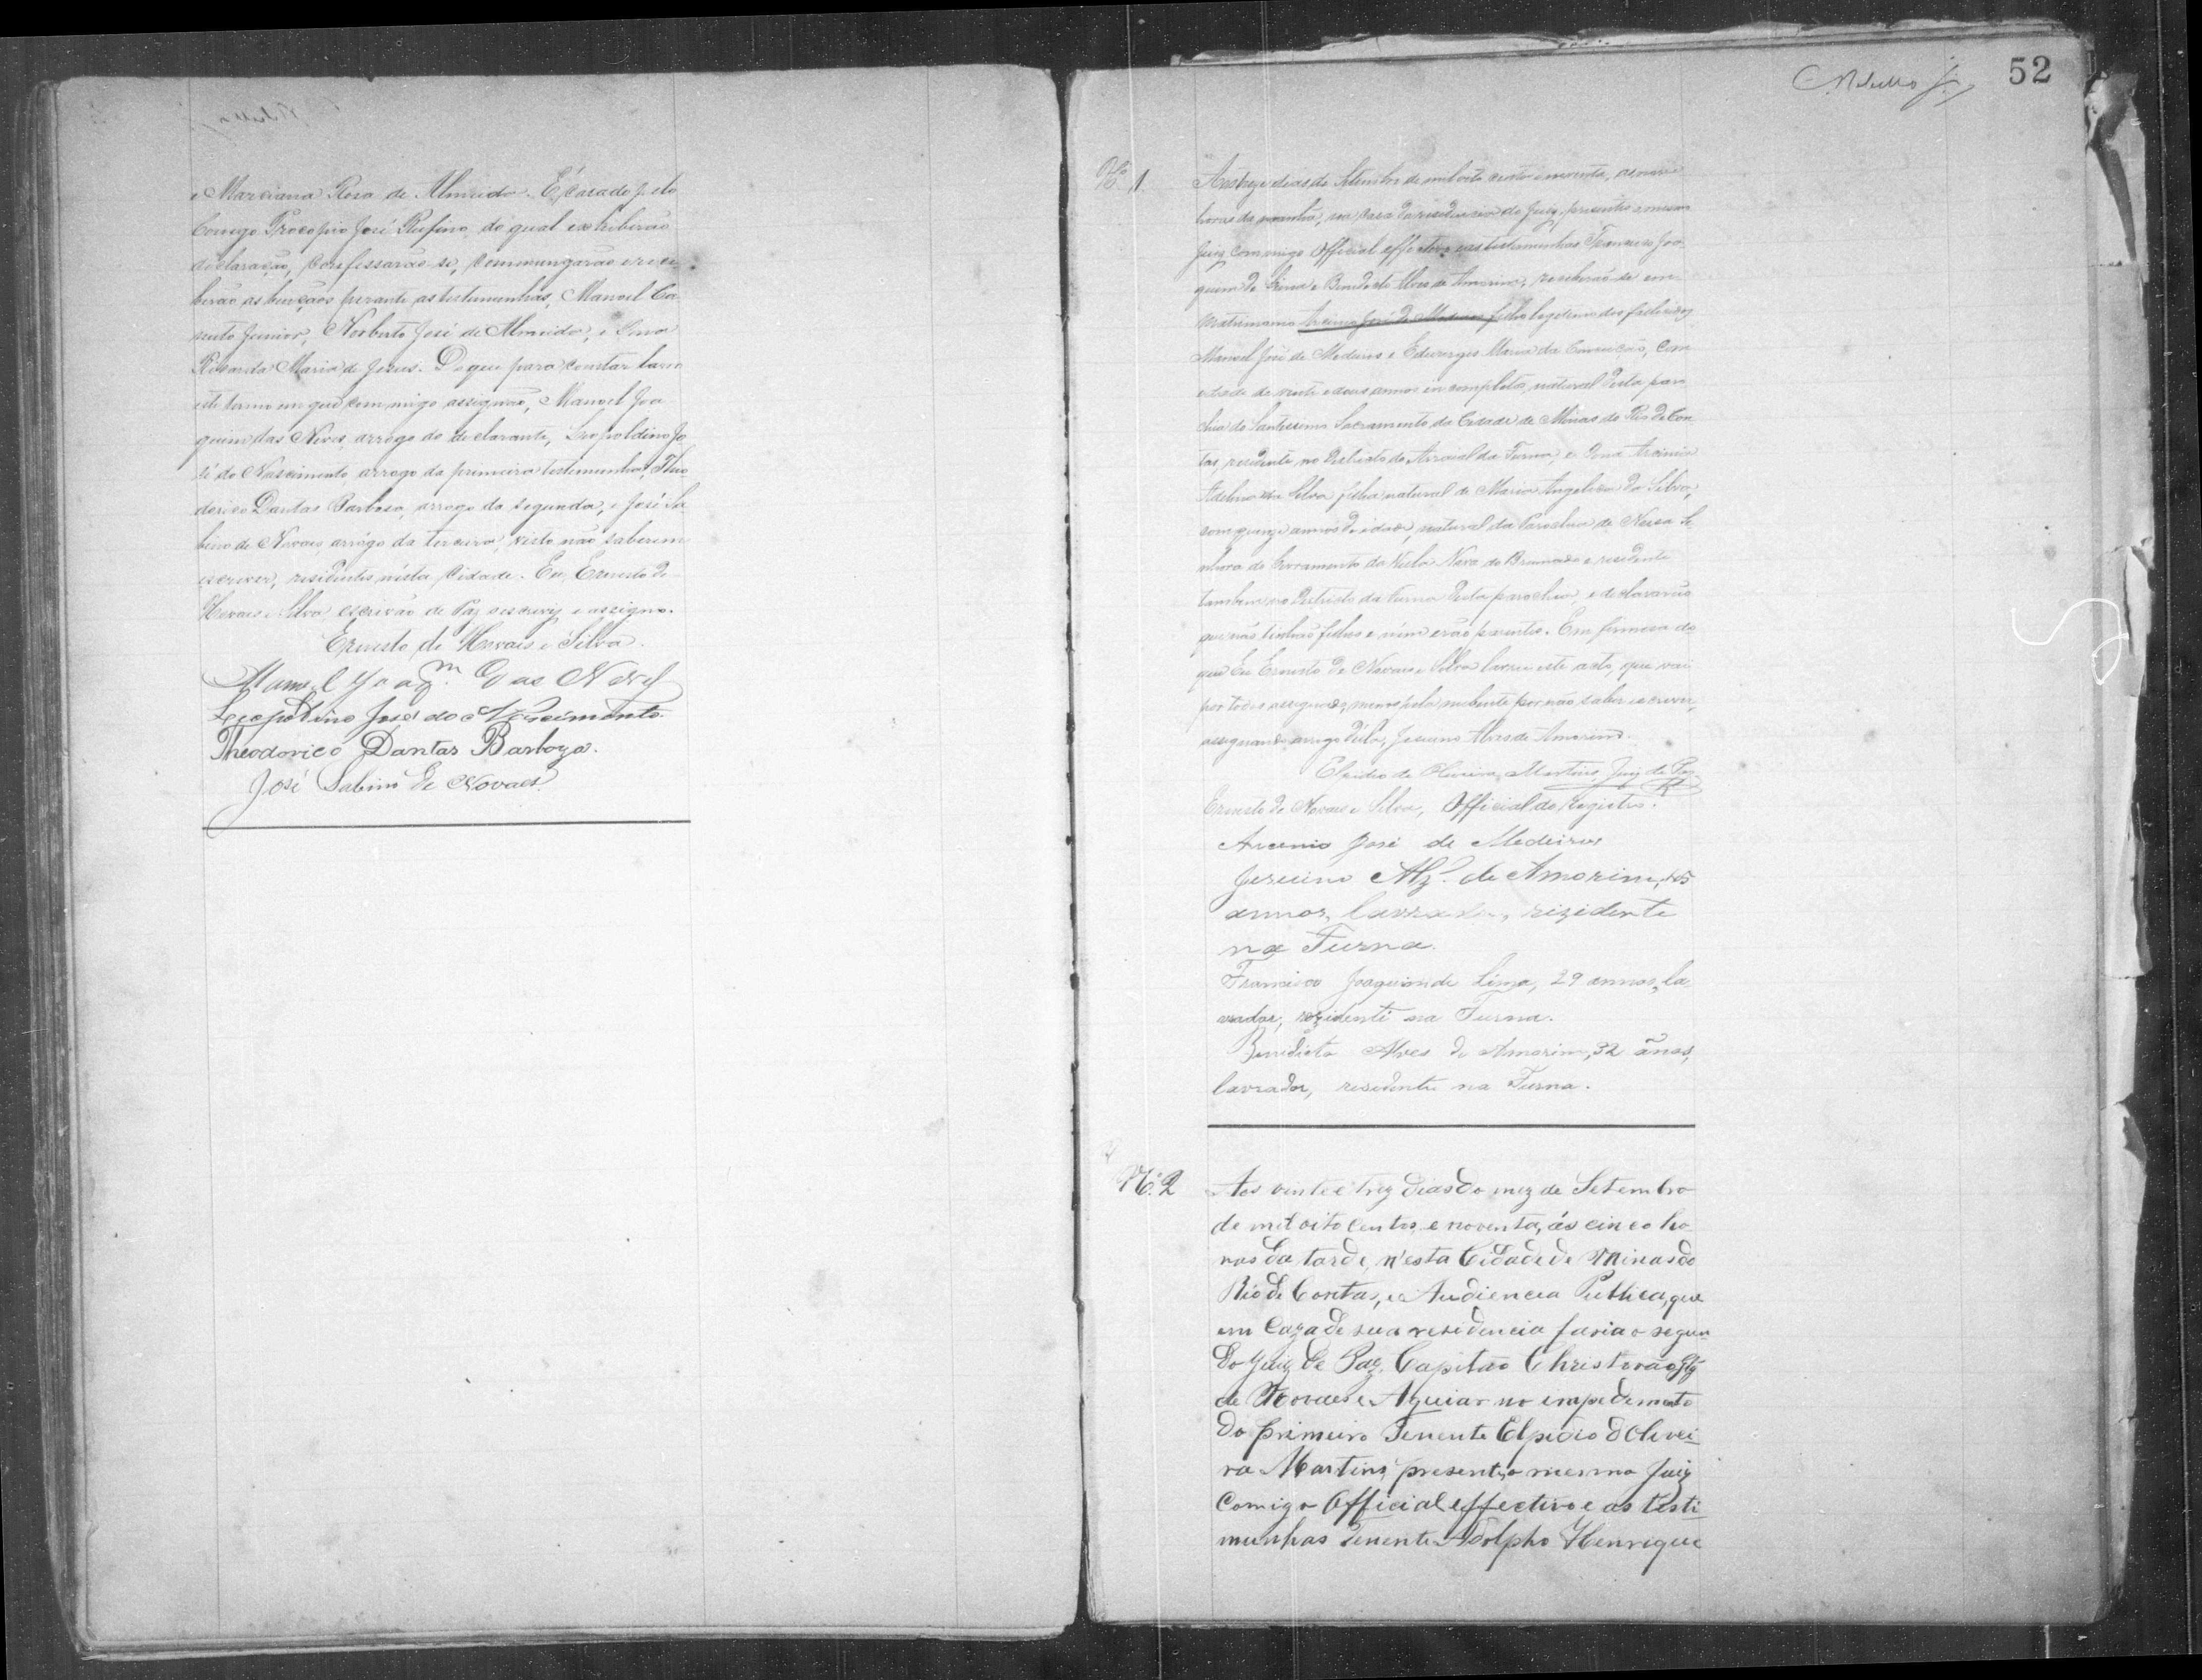 e Marciana Rosa de Almeida. É casado pelo
Conego Procopio José Rufino, do qual exhiberão
declaração, confessarão-se, commungarão e rece
berão as benções perante as testemunhas, Manoel Ca
Junior, Norberto José de Almeida, e Dona
Ricarda Maria de Jesus. Do que para constar lavro
este termo em que commigo assignão, Manoel Joa
quim das Neves, arrogo do declarante, Leopoldino Jo
sé do Nascimento, arrogo da primeira testemunha, Theo
dorico Dantas Barbosa, arrogo da segunda, e José Sa
bino de Novaes, arrogo da terceira, visto não saberem
escrever, residentes nésta Cidade. Eu, Ernesto de
Novaes e Silva, escrivão de Paz escrevy e assigno.
Ernesto de Novaes e Silva.
Manoel Joaq.m das Neves
Leopoldino José do Nascimento
Theodorico Dantas Barboza.
José Sabino de Novaes
52
Nº 1
Aos treze dias de Setembro de mil oito centos e noventa, as nove
horas da manhã, na casa da residencia do Juiz, presentes o mesmo
Juiz, commigo Official effectivo e as testemunhas Francisco Joa
quim de Lima e Benedicto Alves de Amorim, receberão-se em
matrimonio Arcenio José de Medeiros filho legitimo dos fallecidos
Manoel José de Medeiros e Edwirges Maria da Conceição, com
edade de vinte e dous annos incompletos, natural desta paro
chia do Santissimo Sacramento da Cidade de Minas do Rio de Con
tas, residente no Districto do Arraial da Furna, e Dona Arcenia
Adelina da Silva filha natural de Maria Angelica da Silva,
com quinze annos de idade, natural da Parochia de Nossa Se
nhora do Livramento da Villa Nova do Brumado e residente
tambem no Districto da Furna desta parochia, e declararão
que não tinhão filhos e nem erão parentes. Em firmesa do
que Eu Ernesto de Novaes e Silva lavrei este acto, que vai
por todos assignado, menos pela nubente por não saber escrever,
assignando arrogo d'ella, Jesuino Alves de Amorim.
Elpidio de Oliveira Martins, Juiz de Paz
Ernesto de Novaes e Silva, Official do Registro.
Arcenio José de Medeiros
Jesuino Alz. de Amorim, 45
annos, lavrador, rizidente
na Furna.
Francisco Joaquim de Lima, 29 annos, la
vrador, rezidenti na Furna.
Benedicto Alves de Amorim, 32 ānos,
lavrador, residente na Furna.
Nº 2
Aos vinte e trez dias do mez de Setembro
de mil oito centos e noventa, ás cinco ho
ras da tarde, n'esta Cidade de Minas do
Rio de Contas, e Audiencia Publica, que
em Caza de sua residencia fasia o segun
do Juiz de Paz, Capitão Christovão
de Novaes e Aguiar no empedimento
do primeiro Tenente Elpidio d'Olivei
ra Martins, presente o mesmo Juiz
Comigo Official effectivo e as testi
munhas Tenente Adolpho Henrique